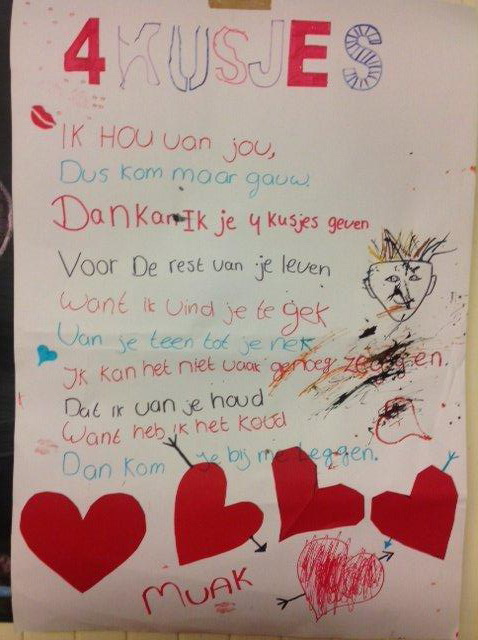 4 KUSJES
IK HOU van jou,
Dus kom maar gauw.
Dan kan Ik je 4 kusjes geven
Voor De rest van je leven
Want ik vind je te gek
Van je teen tot je nek
Ik kan het niet vaak genoeg zeggen.
Dat ik van je houd
Want heb ik het koud
Dan kom je bij me leggen.
MUAK